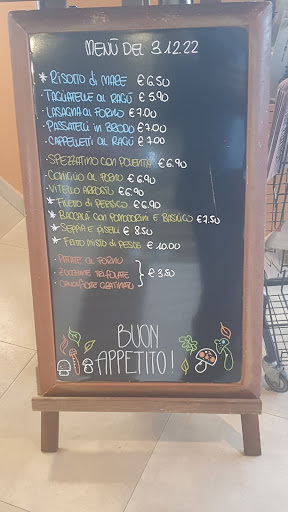 MENÙ DEL 3.12.22
* RISOTTO di MARE € 6.50
• TAGLIATELLE AL RAGÙ € 5.90
• LASAGNA AL FORNO € 7.00
• PASSATELLI IN BRODO € 7.00
• CAPPELLETTI AL RAGÙ € 7.00
• SPEZZATINO CON POLENTA € 6.90
• CONIGLIO AL FORNO € 6.90
• VITELLO ARROSTO € 6.90
* FILETTO DI PERSICO € 6.90
* BACCALÀ CON POMODORINI E BASILICO € 7.50
* SEPPIA E PISELLI € 8.50
* FRITTO MISTO DI PESCE € 10.00
• PATATE AL FORNO
• ZUCCHINE TRIFOLATE } € 3.50
• CAVOLFIORE GRATINATO
BUON
APPETITO!